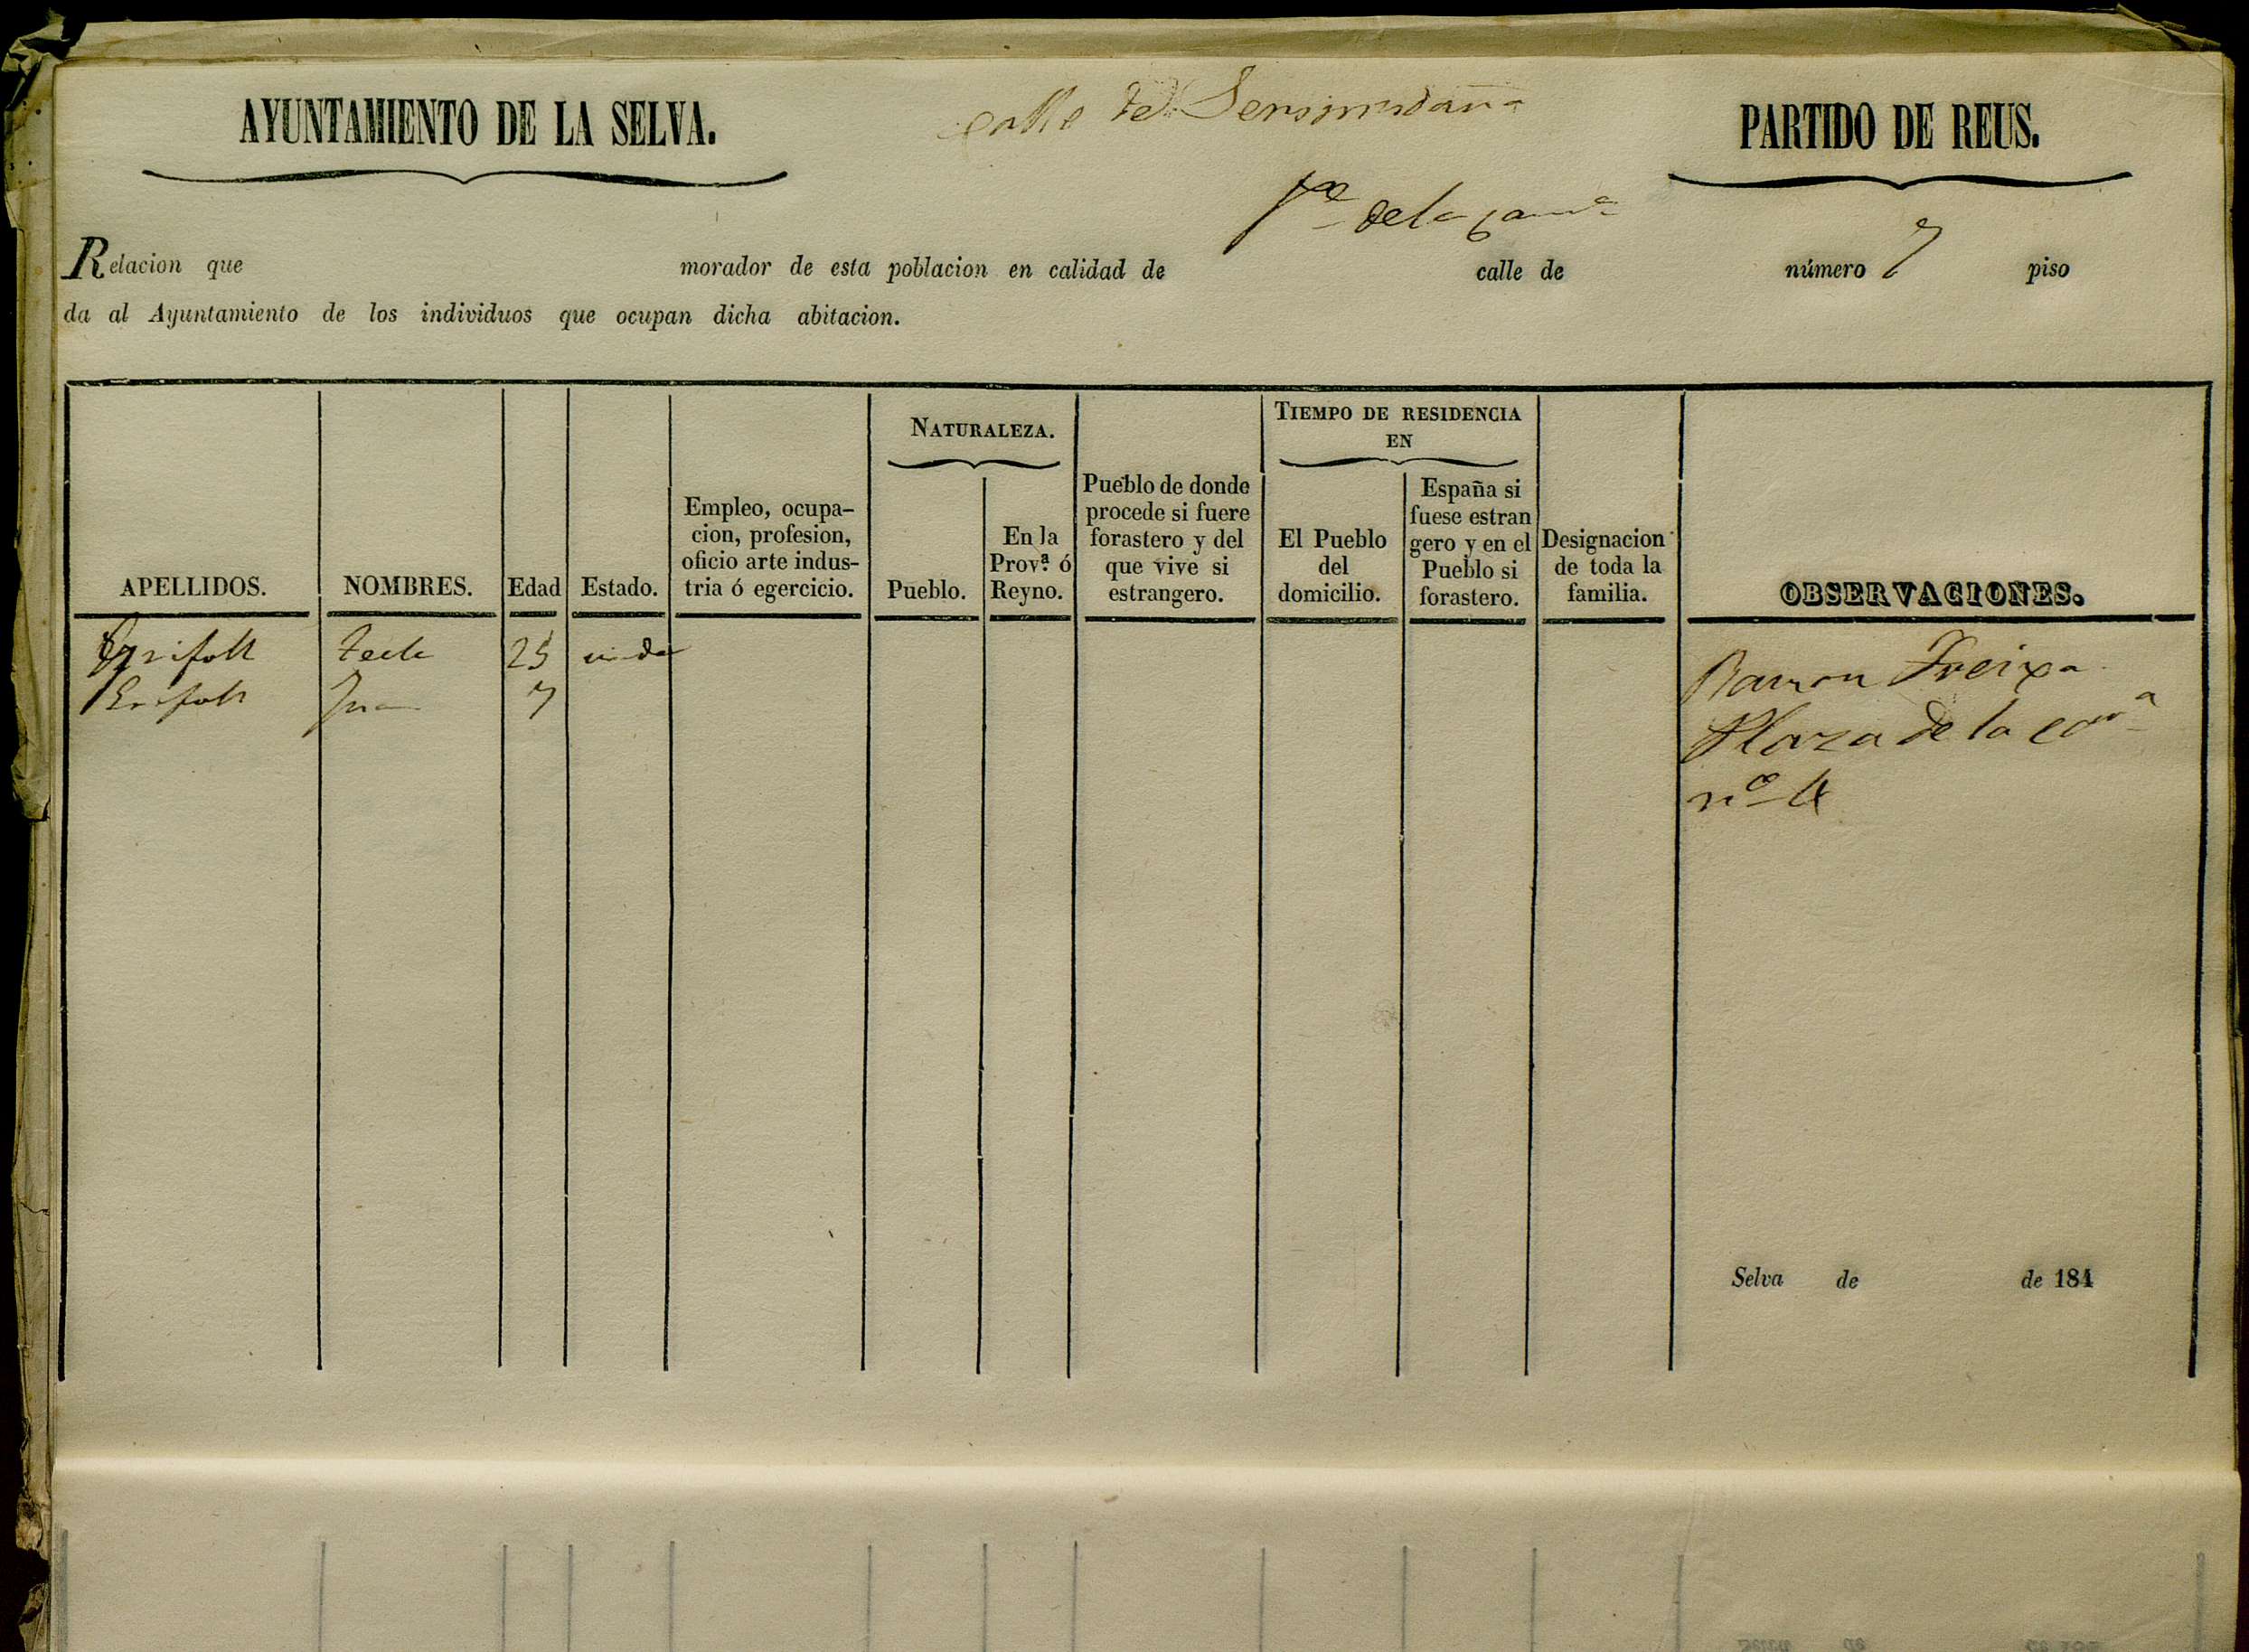 AYUNTAMIENTO DE LA SELVA.
calle de
PARTIDO DE REUS.
de la
Relacion que morador de esta poblacion en calidad de calle de número 7 piso
da al Ayuntamiento de los individuos que ocupan dicha abitacion.
APELLIDOS.
NOMBRES.
Edad
Estado.
Empleo, ocupa-
cion, profesion,
oficio arte indus-
tria ó egercicio.
NATURALEZA.
Pueblo.
En la
Prov.ª ó
Reyno.
Pueblo de donde
procede si fuere
forastero y del
que vive si
estrangero.
TIEMPO DE RESIDENCIA
EN
El Pueblo
del
domicilio.
España si
fuese estran
gero y en el
Pueblo si
forastero.
Designacion
de toda la
familia.
OBSERVACIONES.
Grifoll Tecla 25 viuda
Grifoll Juan 7
Ramon Freixa
Plaza de la
nº 4
Selva de de 184